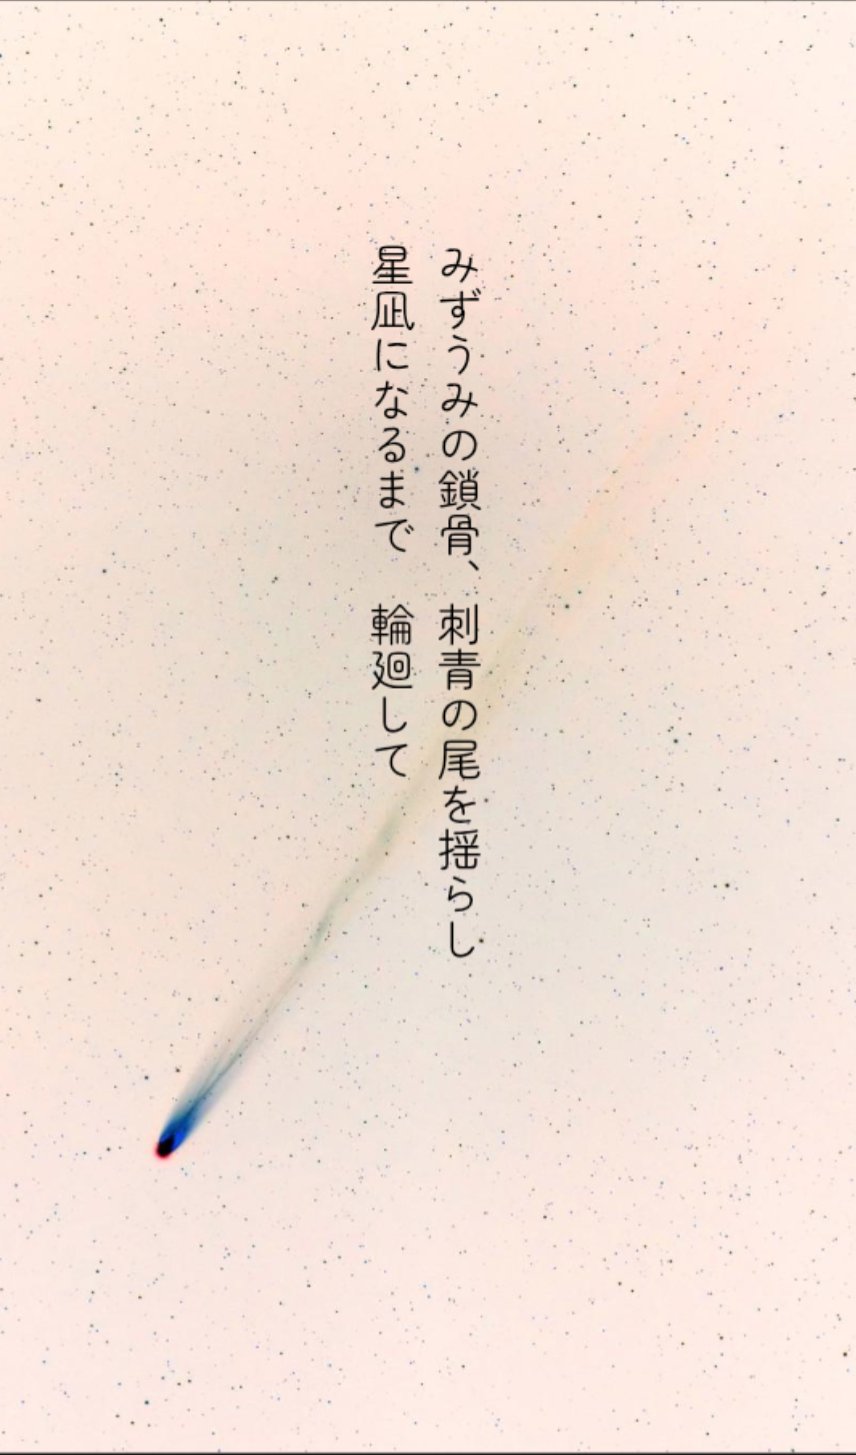 みずうみの鎖骨、刺青の尾を揺らし
星凪になるまで　輪廻して